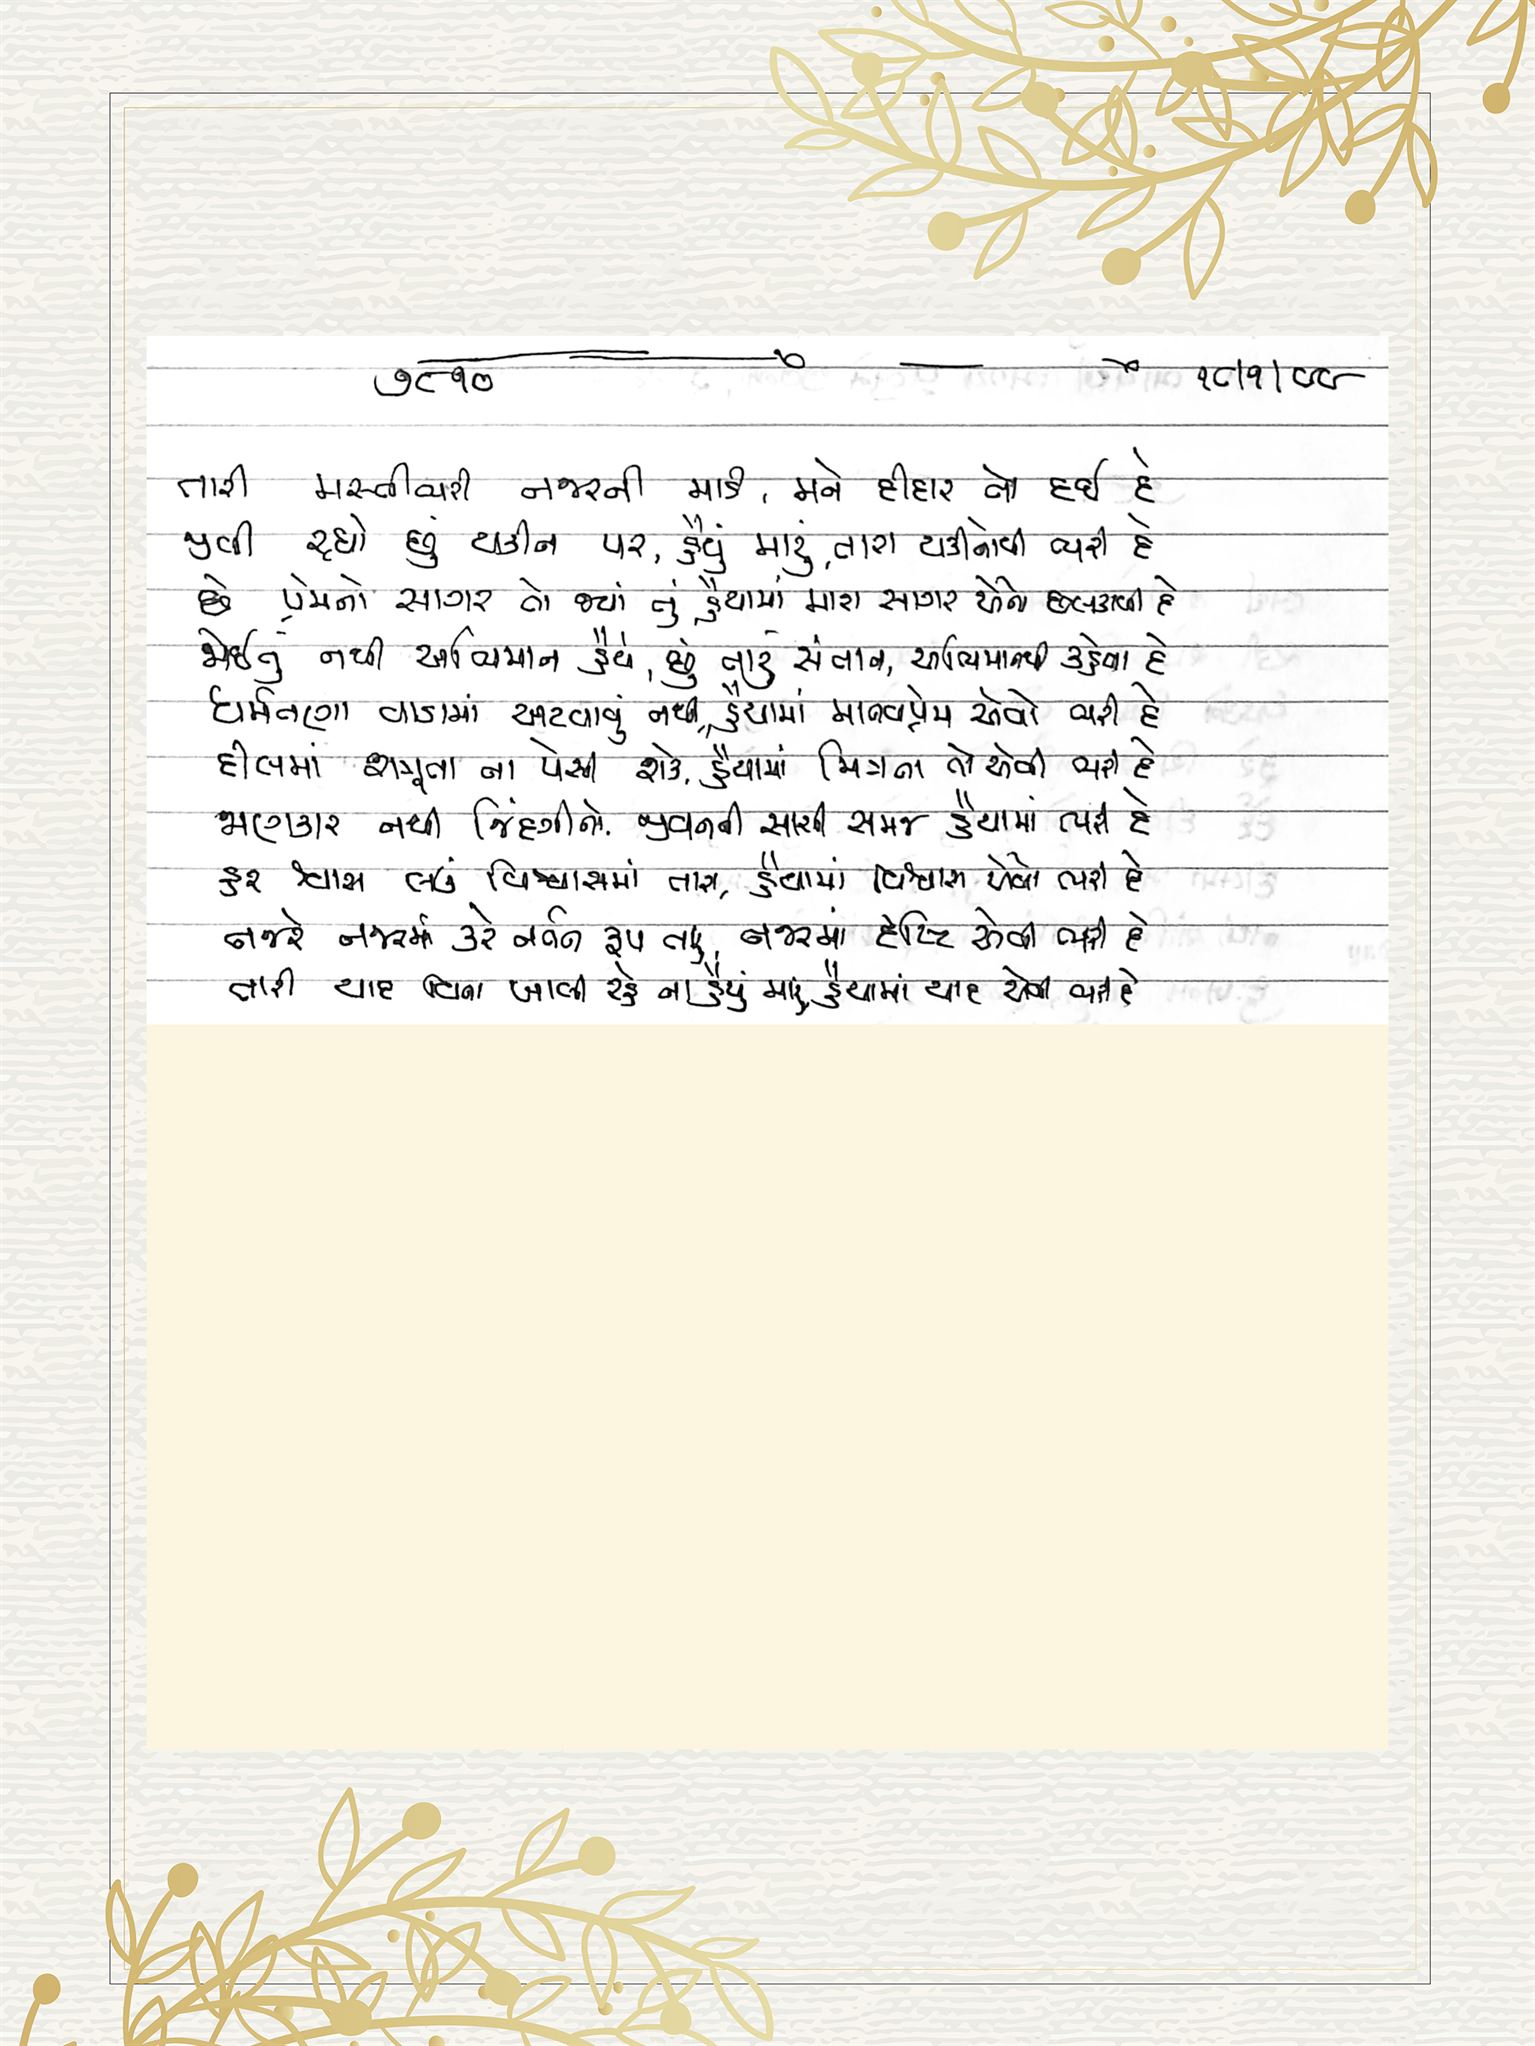 ૭૮૧૦ ૧૮/૧/૯૯
તારી મસ્તીભરી નજરની માડી, મને દીદાર તો દઈ દે
જીવી રહ્યો છું યકીન પર, હૈયું મારું, તારા યકીનોથી ભરી દે
છે પ્રેમનો સાગર તો જ્યાં તું, હૈયામાં મારા સાગર એને છલકાવી દે
કોઈનું નથી અભિમાન હૈયે, છું તારું સંતાન, અભિમાનથી કહેવા દે
ધર્મતણા વાડામાં અટવાવું નથી, હૈયામાં માનવપ્રેમ એવો ભરી દે
દીલમાં શત્રુતા ના પેસી શકે, હૈયામાં મિત્રતા તો એવી ભરી દે
જાણકાર નથી જિંદગીનો, જીવનની સાચી સમજ હૈયામાં ભરી દે
હર શ્વાસ લઉં વિશ્વાસમાં તારા, હૈયામાં વિશ્વાસ એવો ભરી દે
નજરે નજરમાં કરે નર્તન રૂપ તારું, નજરમાં દૃષ્ટિ એવી ભરી દે
તારી યાદ વિના ખાલી રહે ના હૈયું મારું, હૈયામાં યાદ એવી ભરી દે